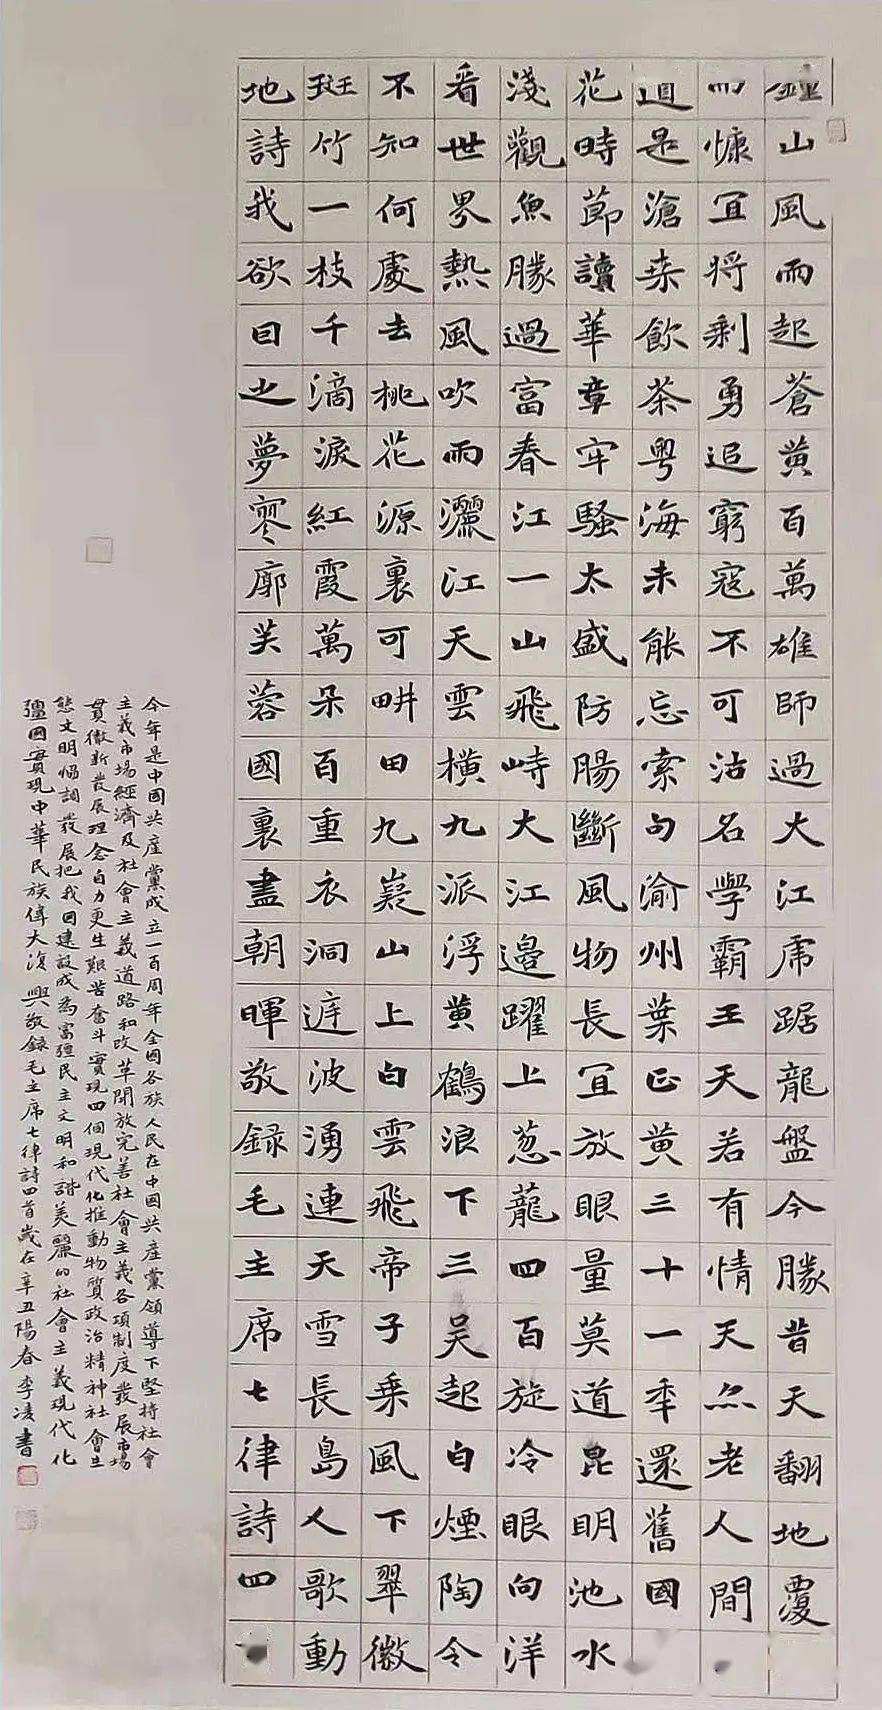 鐘山風雨起蒼黃百萬雄師過大江虎踞龍盤今勝昔天翻地覆
而慷宜將剩勇追窮寇不可沽名學霸王天若有情天亦老人間
道是滄桑飲茶粵海未能忘索句渝州葉正黃三十一秊還舊國
花時節讀華章牢騷太盛防腸斷風物長宜放眼量莫道昆明池水
淺觀魚勝過富春江一山飛峙大江邊躍上蔥蘢四百旋冷眼向洋
看世界熱風吹雨灑江天雲橫九派浮黃鶴浪下三吳起白煙陶令
不知何處去桃花源裏可畊田九嶷山上白雲飛帝子乘風下翠微
斑竹一枝千滴淚紅霞萬朵百重衣洞庭波湧連天雪長島人歌動
地詩我欲因之夢寥廓芙蓉國裏盡朝暉敬録毛主席七律詩四
今年是中國共產黨成立一百周年全國各族人民在中國共產黨領導下堅持社會
主義市場經濟及社會主義道路和改革開放完善社會主義各項制度發展市場
貫徹新發展理念自力更生艱苦奮斗實現四個現代化推動物質政治精神社會生
態文明協調發展把我國建設成為富彊民主文明和諧美麗的社會主義現代化
彊國實現中華民族偉大復興敬録毛主席七律詩四首歲在辛丑陽春李凌書